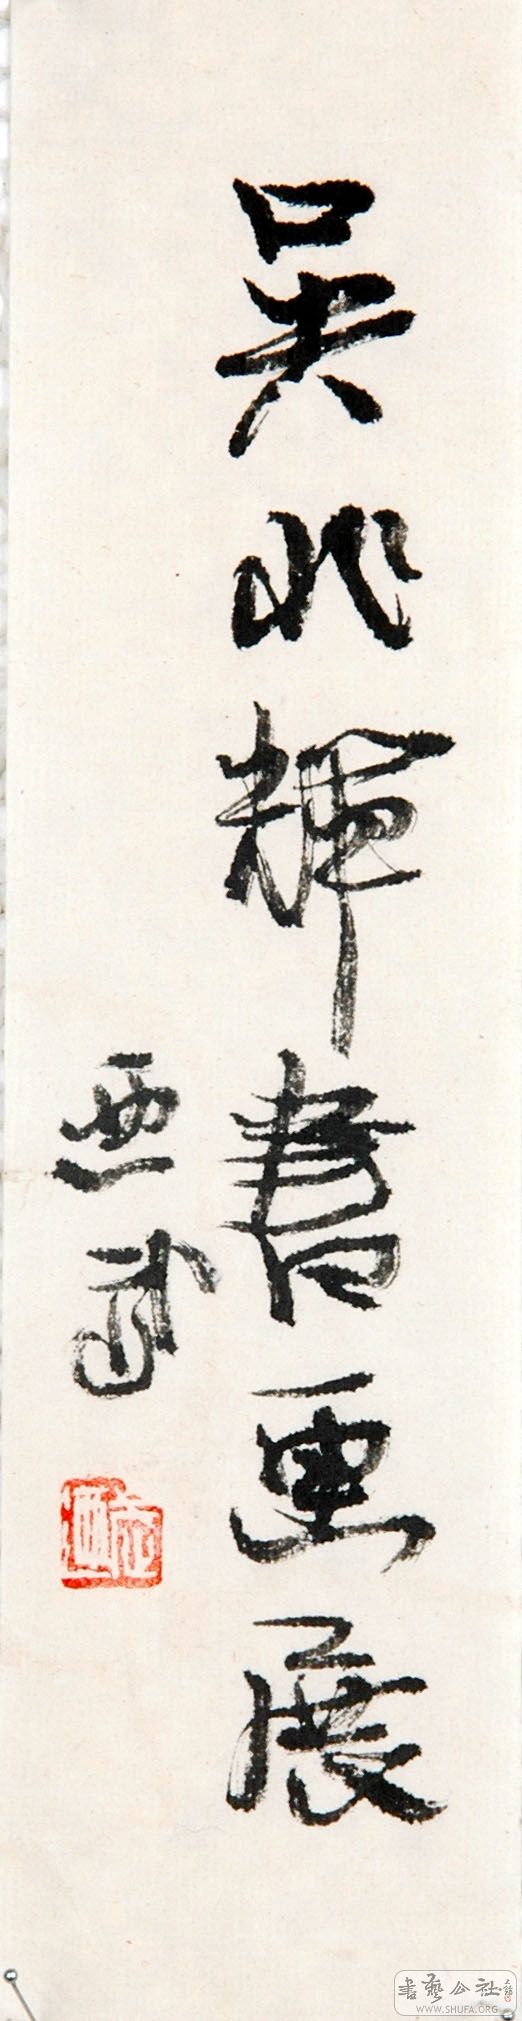 吴兆輝書画展
書藝公社
WWW.SHUFA.ORG